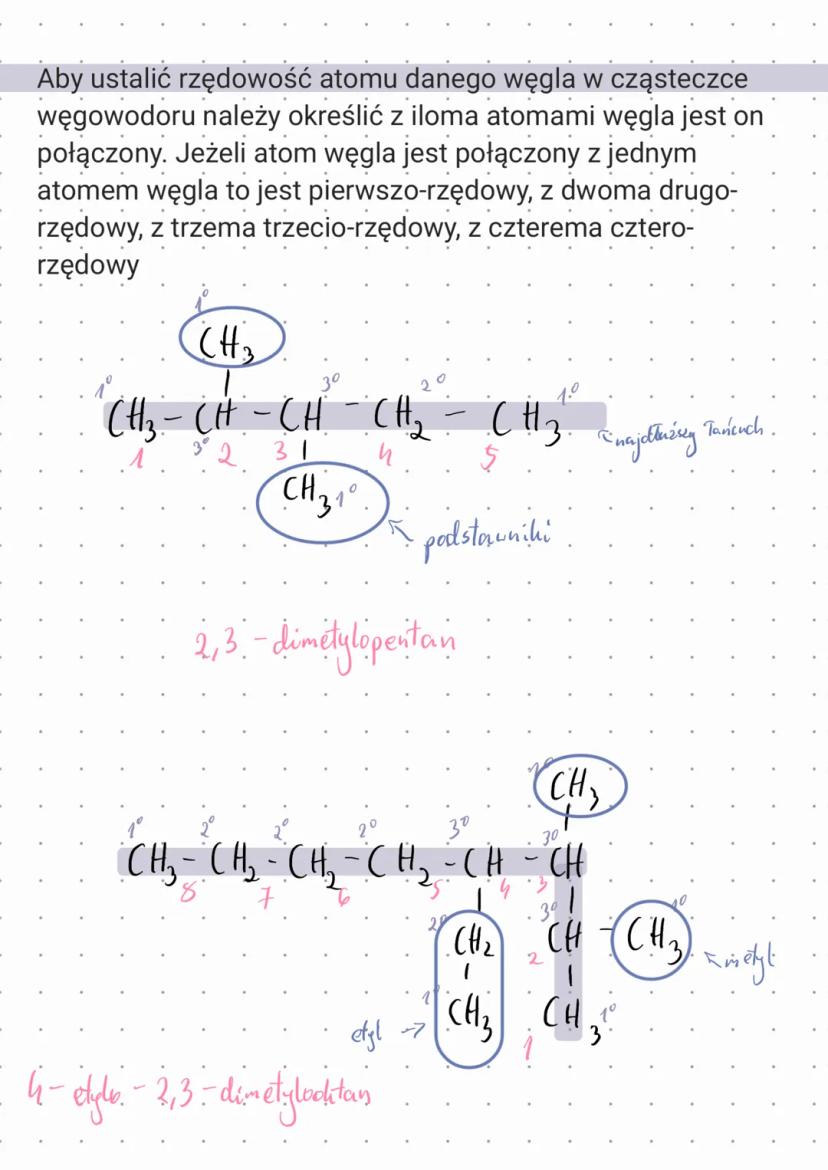 Aby ustalić rzędowość atomu danego węgla w cząsteczce
węgowodoru należy określić z iloma atomami węgla jest on
połączony. Jeżeli atom węgla jest połączony z jednym
atomem węgla to jest pierwszo-rzędowy, z dwoma drugo-
rzędowy, z trzema trzecio-rzędowy, z czterema cztero-
rzędowy
1°
CH₃
1° 3° 2° 1°
CH₃ - CH - CH - CH₂ - CH₃
1 3° 2 3 4 5 najdłuższy łańcuch
CH₃ 1°
podstawniki
2,3 - dimetylopentan
1° CH₃
1° 2° 2° 2° 3° 3°
CH₃ - CH₂ - CH₂ - CH₂ - CH - CH
8 7 6 5 4 3
2° CH₂ 3° CH - CH₃ 1°
2 metyl
1° CH₃ CH₃ 1°
etyl 1
4 - etylo - 2,3 - dimetylooktan